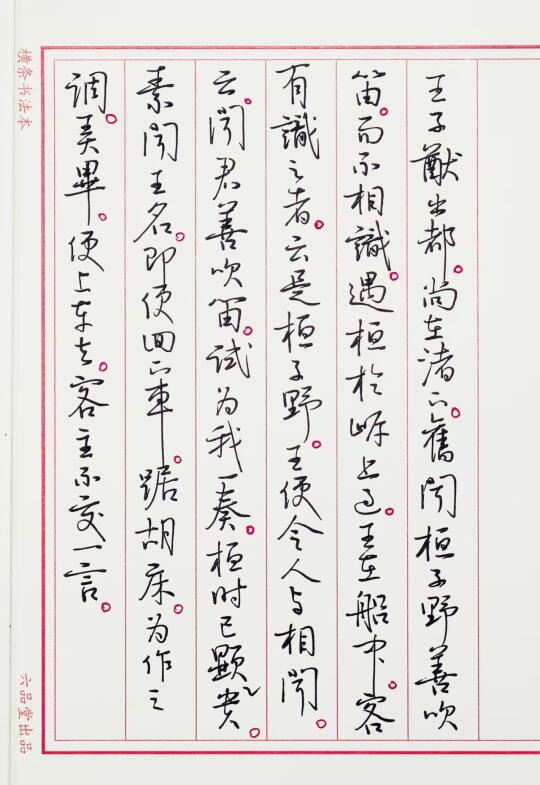 王子猷出都。尚在渚下。舊聞桓子野善吹
笛。而不相識。遇桓於岸上过。王在船中。客
有識之者。云是桓子野。王便令人与相聞。
云。聞君善吹笛。試为我一奏。桓时已顯贵。
素聞王名。即便回下車。踞胡床。为作三
调。弄畢。便上车去。客主不交一言。
横条书法本
六品堂出品